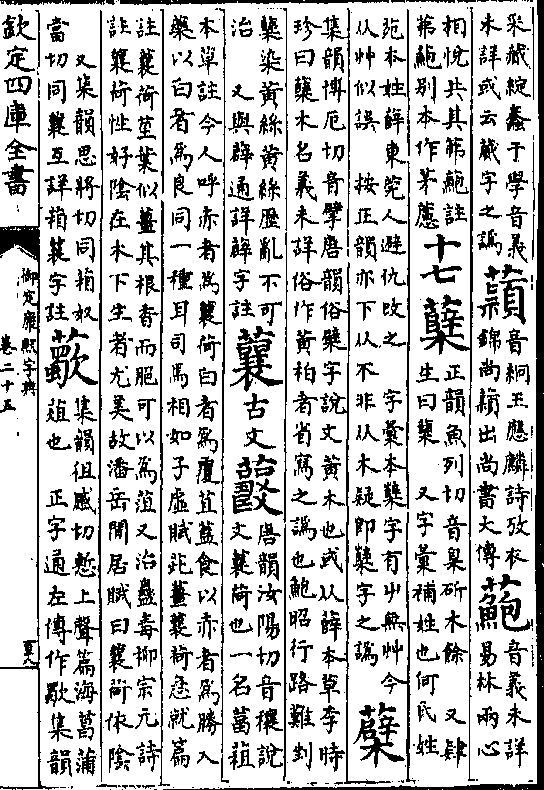 采藏綻蠢于學音義
未詳或云藏字之譌
蘔
音綗王應麟詩攷衣
錦尚蘔出尚書大傳
䕀
音義未詳
易林兩心
相悅共其茀䕀註
茀䕀別本作茅蘆
十七
蘖
正韻魚列切音臬斫木餘
生曰蘖
又肄
又字彙補姓也何氏姓
苑本姓薛東莞人避仇改之
字彙本櫱字有屮無艸今
从艸似誤
按正韻亦下从木不非从木疑即櫱字之譌
蘗
集韻博厄切音擘唐韻俗檗字說文黃木也或从薜本草李時
珍曰蘗木名義未詳俗作黃柏者省寫之譌也鮑昭行路難剉
蘗染黃絲黃絲歷亂不可
治
又與薜通詳薜字註
蘘
古文
唐韻汝陽切音穰說
文蘘荷也一名葍葅
本草註今人呼赤者爲蘘荷白者爲覆苴葢食以赤者爲勝入
藥以白者爲良同一種耳司馬相如子虛賦茈薑蘘荷急就篇
註蘘荷莖葉似薑其根香而脆可以爲葅又治蠱毒柳宗元詩
註蘘荷性好陰在木下生者尤美故潘岳閒居賦曰蘘荷依陰
又集韻思將切同葙奴
當切同蘘互詳葙蘘字註
蘛
集韻徂感切慙上聲篇海菖蒲
葅也
正字通左傳作歜集韻
欽定四庫全書
御定康熙字典
卷二十五